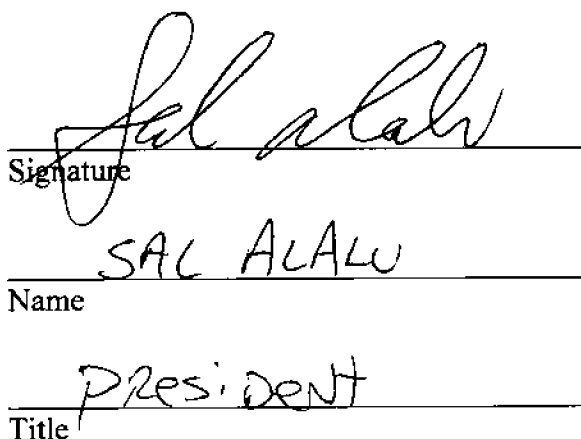 Sal Alalu
Signature
SAL ALALU
Name
PRESIDENT
Title